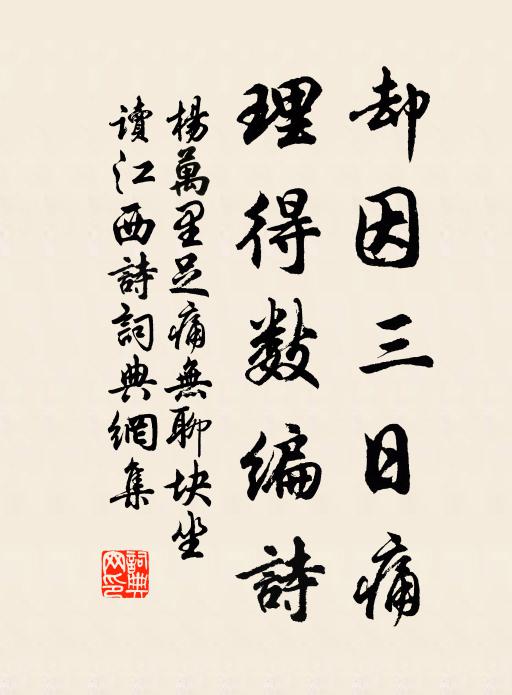 却因三日痛
理得数编詩
楊萬里足痛無聊块坐
讀江西詩詞典網集
詞典
网印